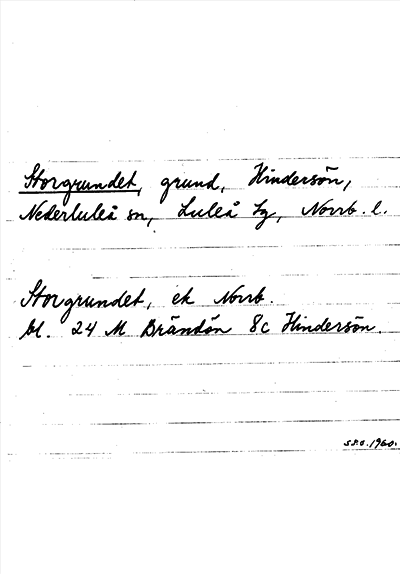 Storgrundet, grund, Hindersön,
Nederluleå sn, Luleå tg, Norrb. l.
Storgrundet, ek Norrb.
bl. 24 M Brändön 8c Hindersön.
SSO.1960.